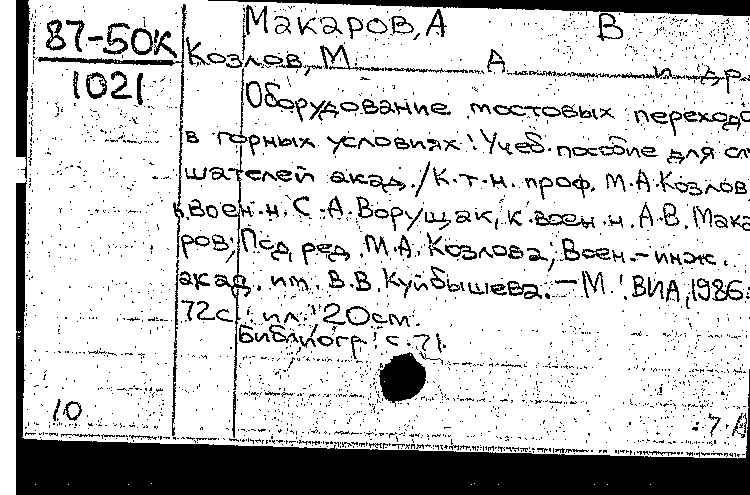 87-50К
1021
Макаров, А В
Козлов, М А и др
Оборудование мостовых переходо
в горных условиях: Учеб. пособие для сл
шателей акад. / К.т.н. проф. М.А.Козлов
к.воен.н. С.А.Ворущак, к.воен.н. А.В. Мака
ров; Под ред. М.А. Козлова; Воен.-инж.
акад. им. В.В. Куйбышева. - М.: ВИА, 1986.
72с.: ил.: 20см.
Библиогр.: с.71.
10